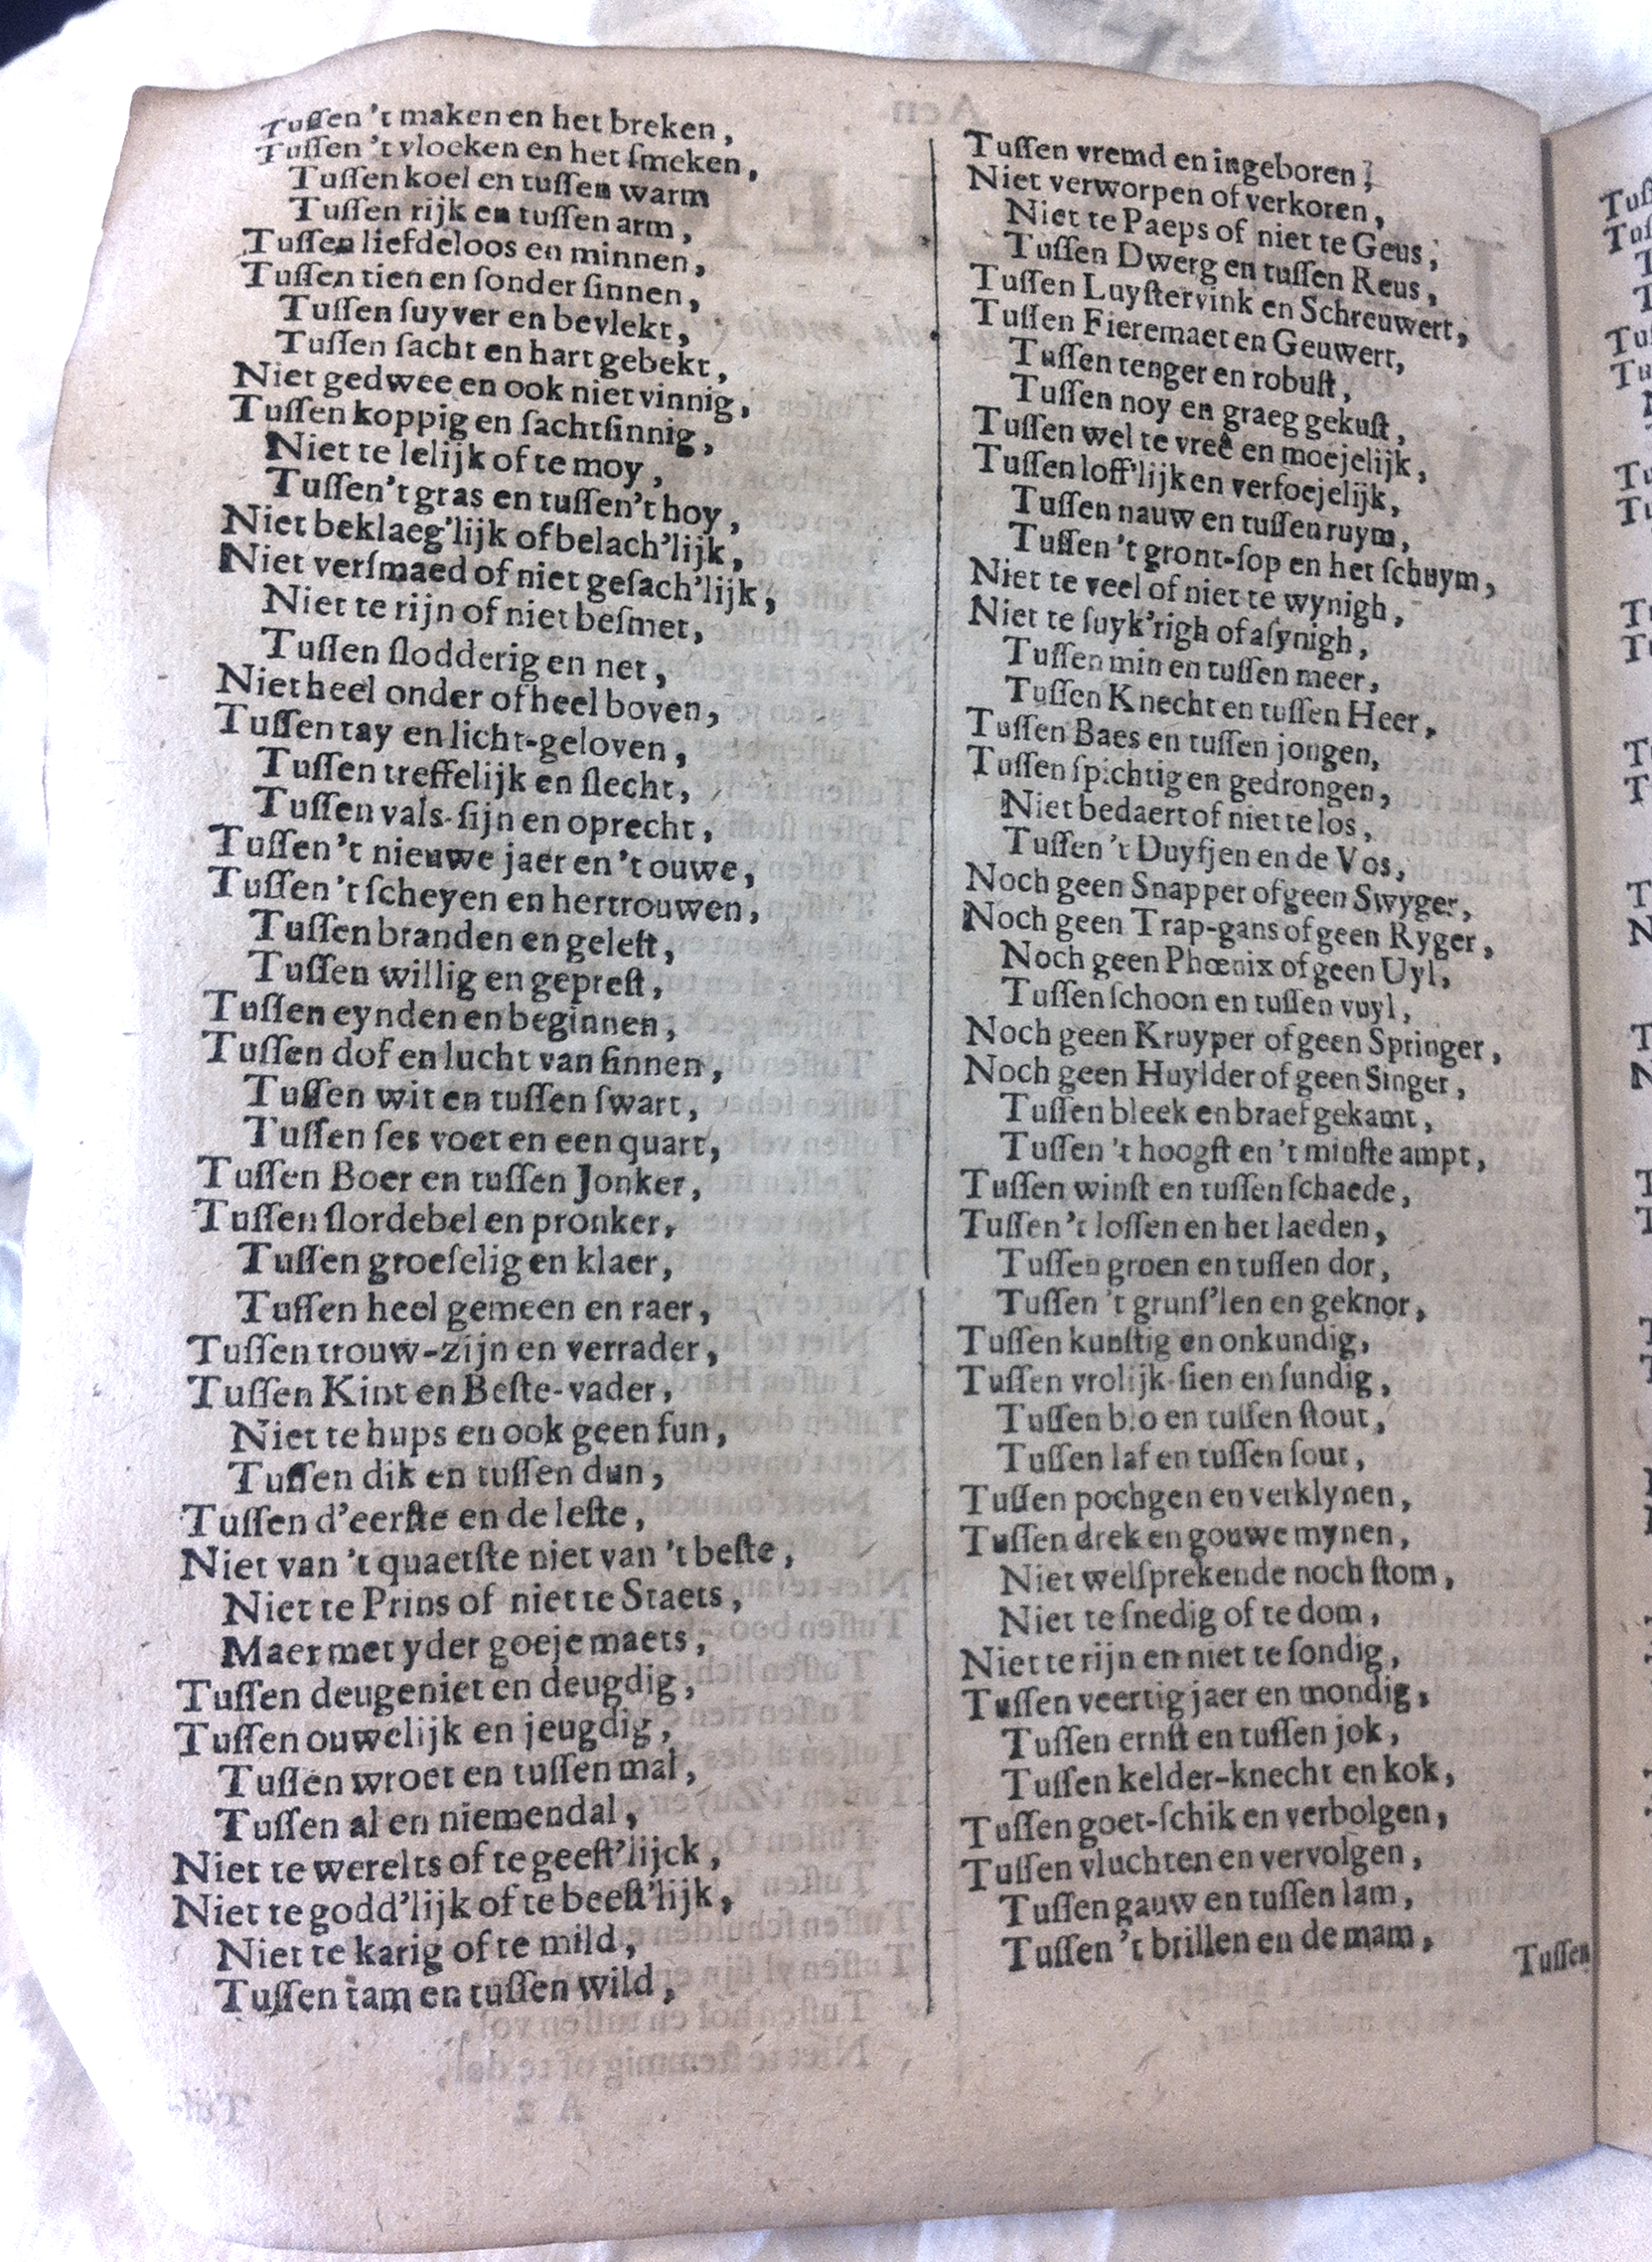 Tuſſen 't maken en het breken,
Tuſſen 't vloeken en het ſmeken,
Tuſſen koel en tuſſen warm
Tuſſen rijk en tuſſen arm,
Tuſſen liefdeloos en minnen,
Tuſſen tien en ſonder ſinnen,
Tuſſen ſuyver en bevlekt,
Tuſſen ſacht en hart gebekt,
Niet gedwee en ook niet vinnig,
Tuſſen koppig en ſachtſinnig,
Niet te lelijk of te moy,
Tuſſen 't gras en tuſſen 't hoy,
Niet beklaeg'lijk of belach'lijk,
Niet verſmaed of niet geſach'lijk,
Niet te rijn of niet beſmet,
Tuſſen ſlodderig en net,
Niet heel onder of heel boven,
Tuſſen tay en licht-geloven,
Tuſſen treffelijk en ſlecht,
Tuſſen vals-ſijn en oprecht,
Tuſſen 't nieuwe jaer en 't ouwe,
Tuſſen 't ſcheyen en hertrouwen,
Tuſſen branden en geleſt,
Tuſſen willig en gepreſt,
Tuſſen eynden en beginnen,
Tuſſen dof en lucht van ſinnen,
Tuſſen wit en tuſſen ſwart,
Tuſſen ſes voet en een quart,
Tuſſen Boer en tuſſen Jonker,
Tuſſen ſlordebel en pronker,
Tuſſen groeſelig en klaer,
Tuſſen heel gemeen en raer,
Tuſſen trouw-zijn en verrader,
Tuſſen Kint en Beſte-vader,
Niet te hups en ook geen fun,
Tuſſen dik en tuſſen dun,
Tuſſen d'eerſte en de leſte,
Niet van 't quaetſte niet van 't beſte,
Niet te Prins of niet te Staets,
Maer met yder goeje maets,
Tuſſen deugeniet en deugdig,
Tuſſen ouwelijk en jeugdig,
Tuſſen wroet en tuſſen mal,
Tuſſen al en niemendal,
Niet te werelts of te geeſt'lijck,
Niet te godd'lijk of te beeſt'lijk,
Niet te karig of te mild,
Tuſſen tam en tuſſen wild,
Tuſſen vremd en ingeboren,
Niet verworpen of verkoren,
Niet te Paeps of niet te Geus,
Tuſſen Dwerg en tuſſen Reus,
Tuſſen Luyſtervink en Schreuwert,
Tuſſen Fieremaet en Geuwert,
Tuſſen tenger en robuſt,
Tuſſen noy en graeg gekuſt,
Tuſſen wel te vreê en moejelijk,
Tuſſen loff'lijk en verfoejelijk,
Tuſſen nauw en tuſſen ruym,
Tuſſen 't gront-ſop en het ſchuym,
Niet te veel of niet te wynigh,
Niet te ſuyk'righ of aſynigh,
Tuſſen min en tuſſen meer,
Tuſſen Knecht en tuſſen Heer,
Tuſſen Baes en tuſſen jongen,
Tuſſen ſpichtig en gedrongen,
Niet bedaert of niet te los,
Tuſſen 't Duyfjen en de Vos,
Noch geen Snapper of geen Swyger,
Noch geen Trap-gans of geen Ryger,
Noch geen Phœnix of geen Uyl,
Tuſſen ſchoon en tuſſen vuyl,
Noch geen Kruyper of geen Springer,
Noch geen Huylder of geen Singer,
Tuſſen bleek en braef gekamt,
Tuſſen 't hoogſt en 't minſte ampt,
Tuſſen winſt en tuſſen ſchaede,
Tuſſen 't loſſen en het laeden,
Tuſſen groen en tuſſen dor,
Tuſſen 't grunſ'len en geknor,
Tuſſen kunſtig en onkundig,
Tuſſen vrolijk-ſien en ſundig,
Tuſſen blo en tuſſen ſtout,
Tuſſen laf en tuſſen ſout,
Tuſſen pochgen en verklynen,
Tuſſen drek en gouwe mynen,
Niet welſprekende noch ſtom,
Niet te ſnedig of te dom,
Niet te rijn en niet te ſondig,
Tuſſen veertig jaer en mondig,
Tuſſen ernſt en tuſſen jok,
Tuſſen kelder-knecht en kok,
Tuſſen goet-ſchik en verbolgen,
Tuſſen vluchten en vervolgen,
Tuſſen gauw en tuſſen lam,
Tuſſen 't brillen en de mam,
Tuſſen